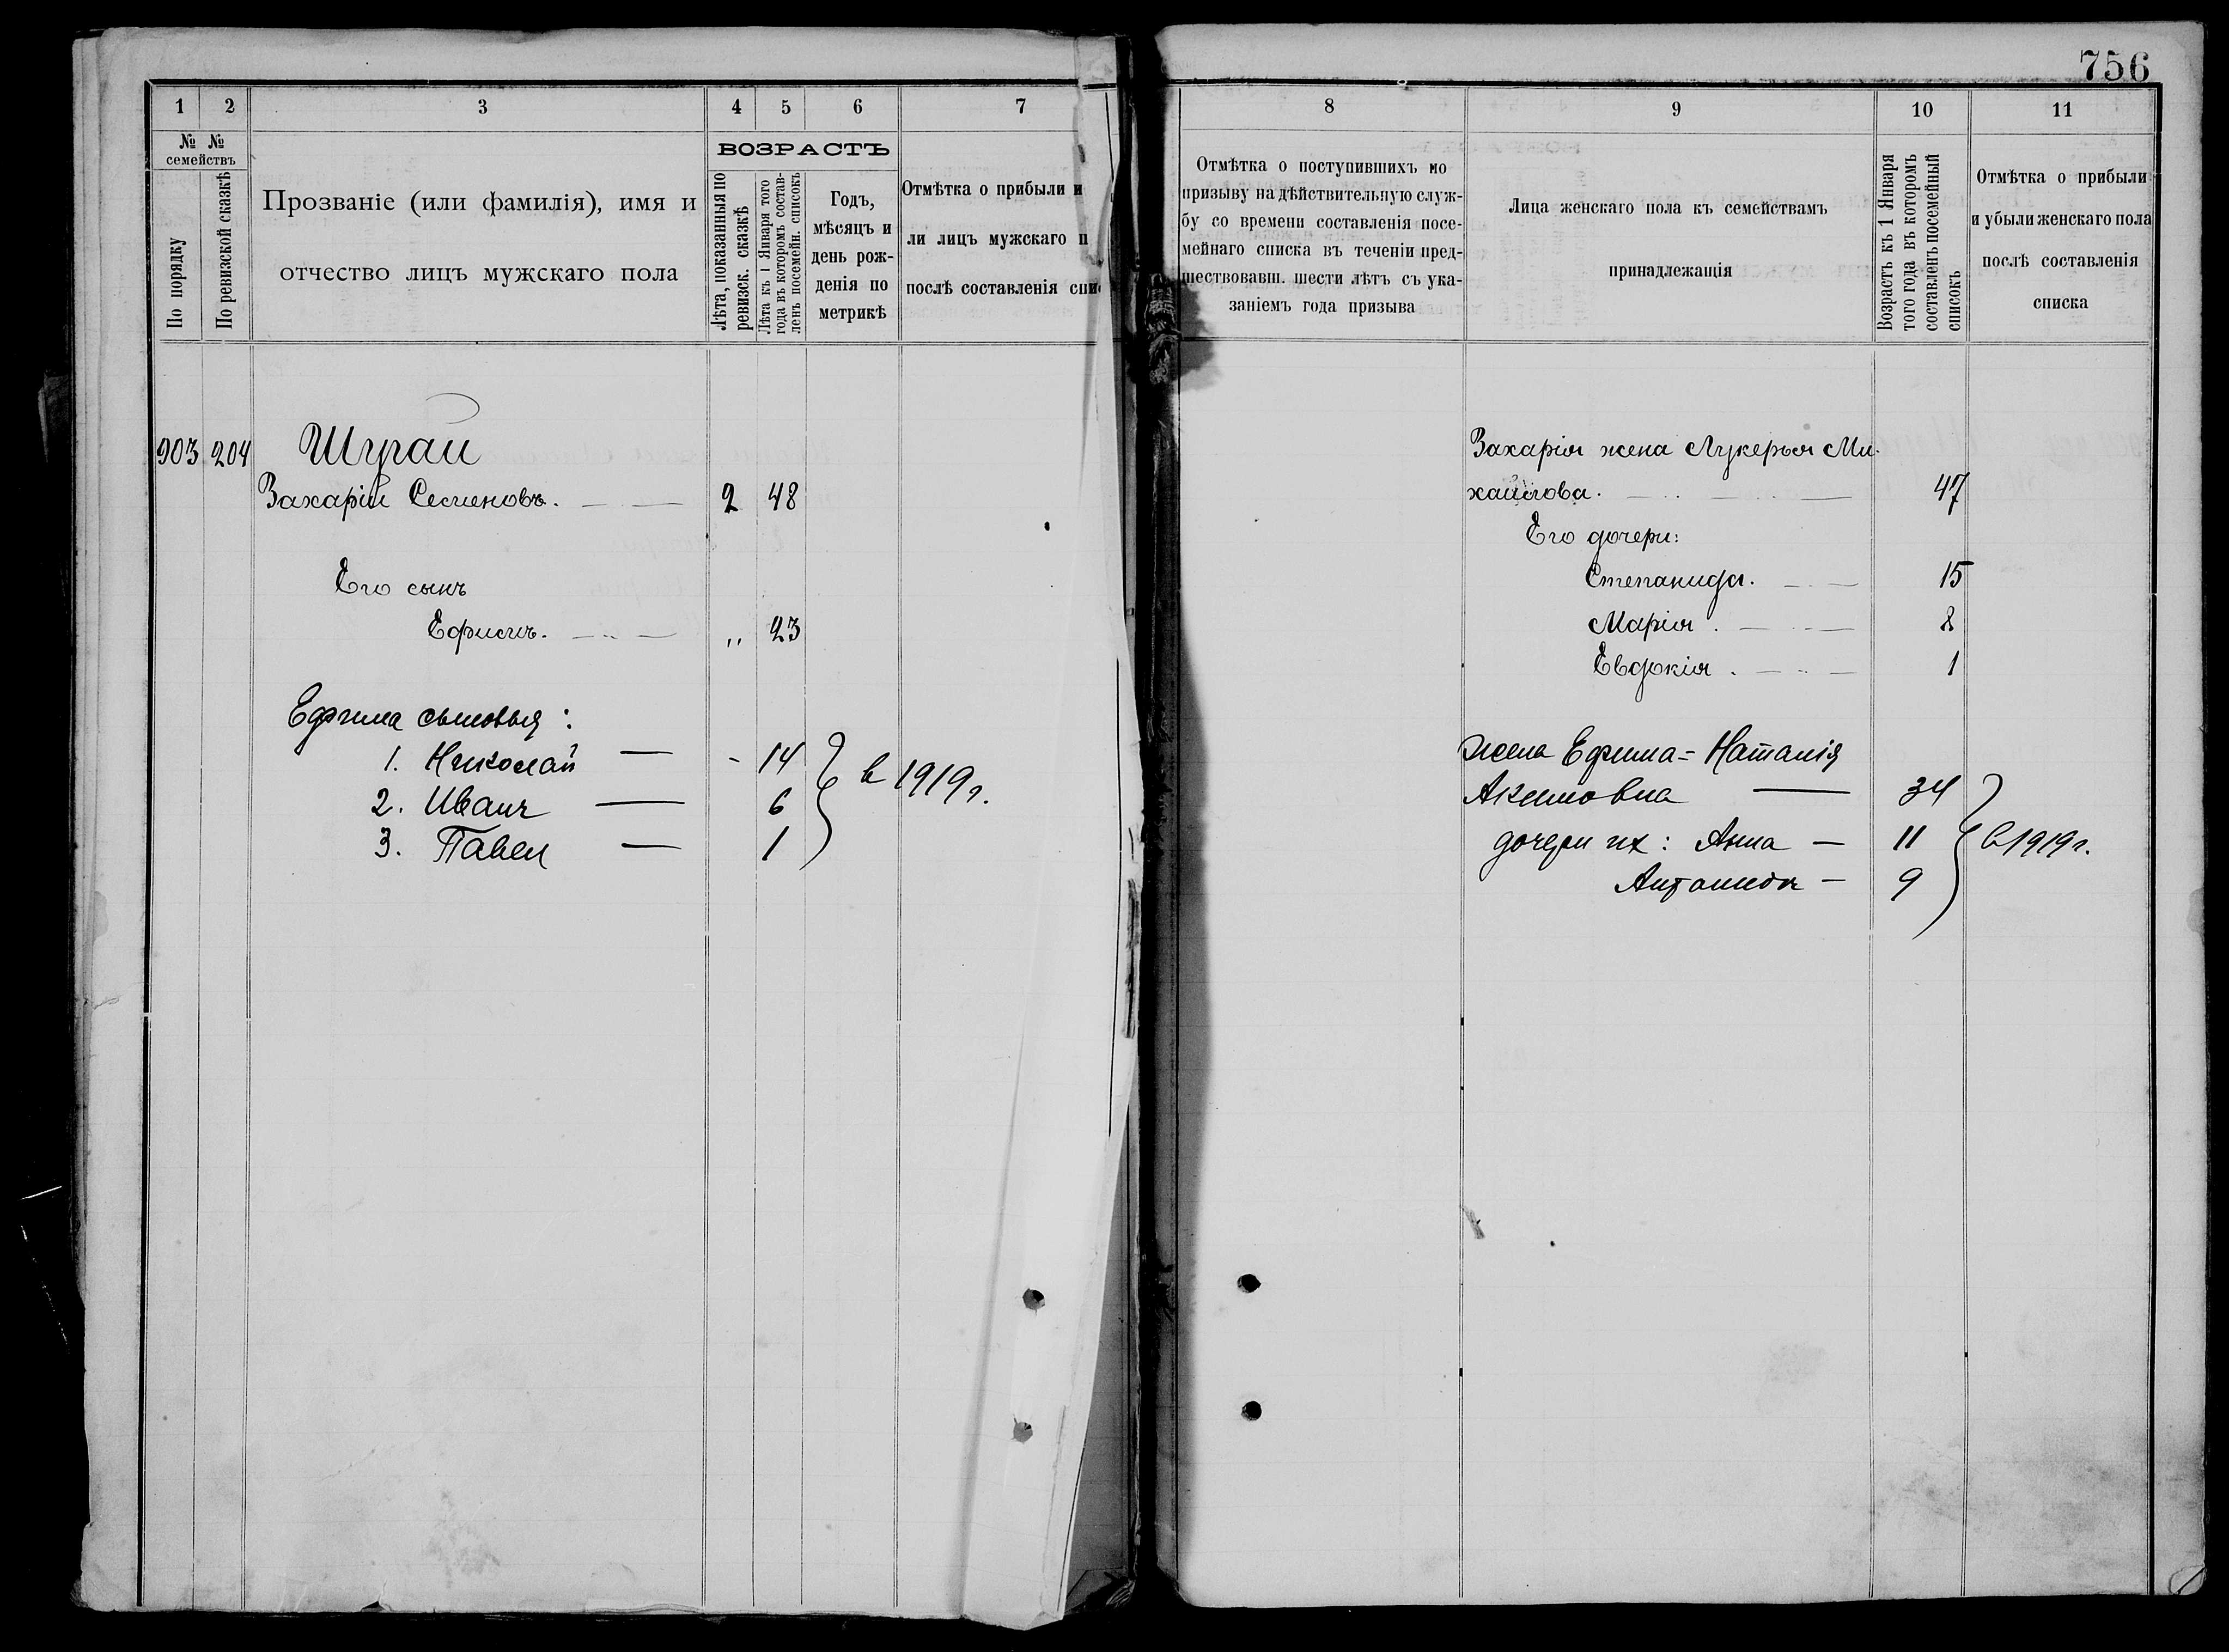 756
1 2 3 4 5 6 7
№ №
семействъ
По порядку
По ревизской сказкѣ
Прозваніе (или фамилія), имя и
отчество лицъ мужскаго пола
ВОЗРАСТЪ
Лѣта, показанныя по
ревизск. сказкѣ
Лѣта къ 1 Января того
года въ которомъ состав-
ленъ посемейн. списокъ
Годъ,
мѣсяцъ и
день рож-
денія по
метрикѣ
Отмѣтка о прибыли и
ли лицъ мужскаго п
послѣ составленія спис
903 204 Шграй
Захарій Семеновъ. 2 48
Его сынъ
Ефимъ. „ 23
Ефима сыновья:
1. Николай — - 14
2. Иванъ — 6
3. Павел — 1
в 1919 г.
8 9 10 11
Отмѣтка о поступившихъ по
призыву на дѣйствительную служ-
бу со времени составленія посе-
мейнаго списка въ теченіи пред-
шествовавш. шести лѣтъ съ ука-
заніемъ года призыва
Лица женскаго пола къ семействамъ
принадлежащія
Возрастъ къ 1 Января
того года въ которомъ
составленъ посемейный
списокъ
Отмѣтка о прибыли
и убыли женскаго пола
послѣ составленія
списка
Захарія жена Лукерья Ми-
хайлова. 47
Его дочери:
Степанида. 15
Марія. 8
Евдокія. 1
жена Ефима = Наталія
34
дочери их: Анна — 11
9
в 1919 г.